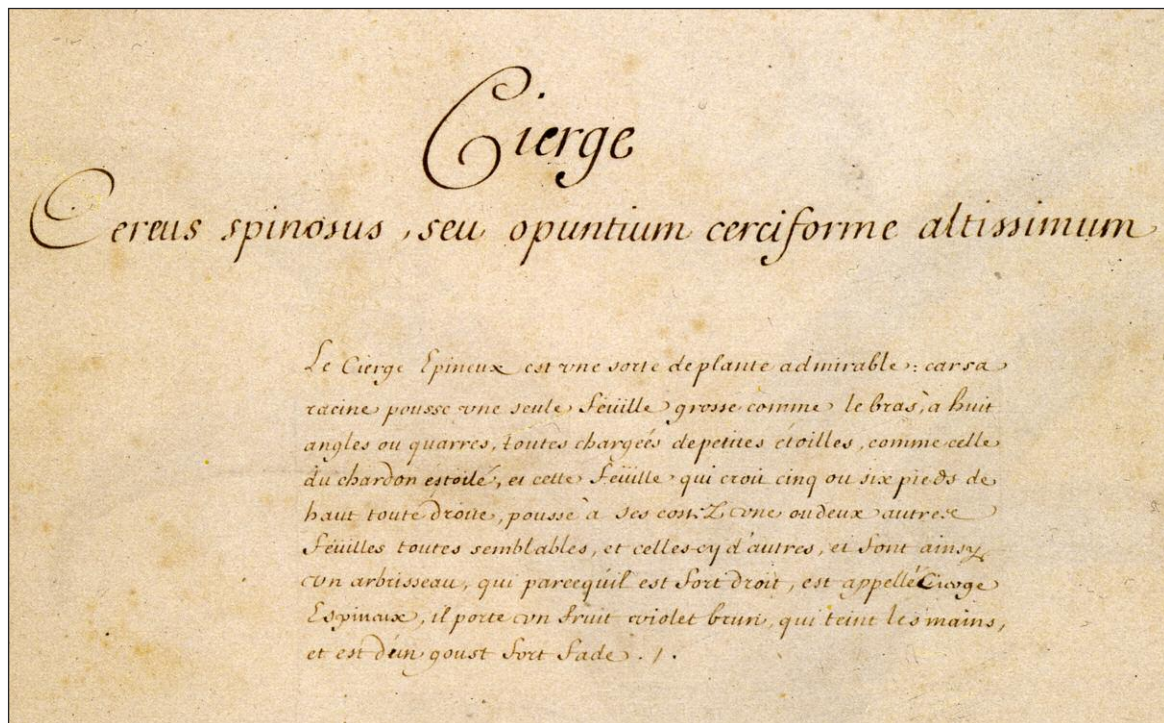 Cierge
Cereus spinosus, seu opuntium cerciforme altissimum
Le Cierge Epineux est vne sorte de plante admirable: car sa
racine pousse vne seule féüille grosse comme le bras, a huit
angles ou quarres, toutes chargeés de petites étoilles, comme celle
du chardon éstoilé, et cette féüille qui croit cinq ou six pieds de
haut toute droite, pousse à ses costéZ vne ou deux autres
féüilles toutes semblables, et celles-cy d'autres, et font ainsy
vn arbrisseau, qui parcequil est fort droit, est appellé Cierge
Espineux, il porte vn fruit violet brun, qui teint les mains,
et est d'ún goust fort fade. /.